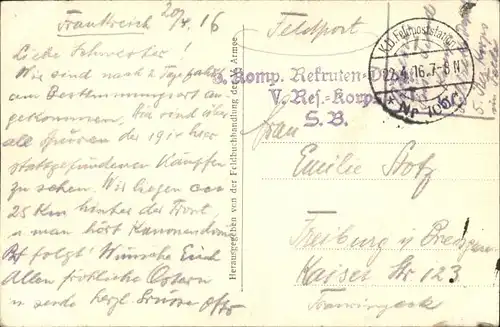 Frankreich 20/4.16
Liebe Schwester!
Wir sind nach 2 Tage fahrt
am Bestimmungsort an
gekommen. Hir sind über
all Spuren des 1914 hier
stattgefundenen Kämpfen
zu sehen. Wir liegen ca
25 Km hinter der Front
u man hört Kanonendonner
Bf folgt! Wünsche Euch
Allen fröhliche Ostern
u sende herzl. Grüsse Otto
Herausgegeben von der Feldbuchhandlung der 5. Armee
Feldpost
K.D. Feldpoststation
22.4.16. 7-8 N
Nr 106
3. Komp. Rekruten-D
V. Res.-Korps
S. B.
Frau
Emilie Stotz
Freiburg i/ Breisgau
Kaiser Str 123